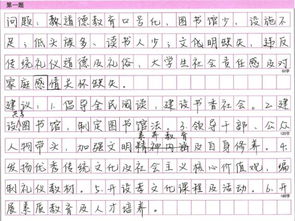 第一题
问题：教道德教育口号化，图书馆少，设施不
足；低头族多，读书人少；文化明缺失，违反
传统文化道德及礼俗，大学生社会责任感及对
家庭感情关怀缺失。
建议：1.倡导全民阅读，建设书香社会。2.建
设图书馆，制定图书馆法。3.领导干部、公众
人物带头，加强文明精神内涵及自身修养。4.
发扬优秀传统文化及社会主义核心价值观，编
制礼仪教材。5.开设孝文化课程及活动。6.开
展素质教育及人才培养。